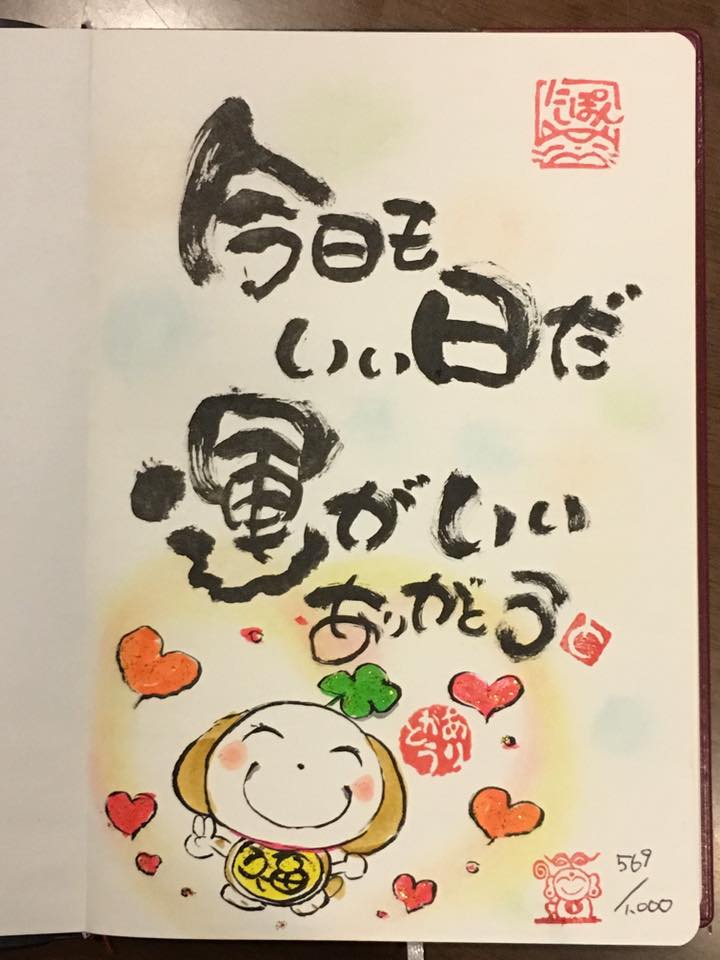 にしぽん
今日も
いい日だ
運がいい
ありがとう
ありがとう
福
569
/1,000